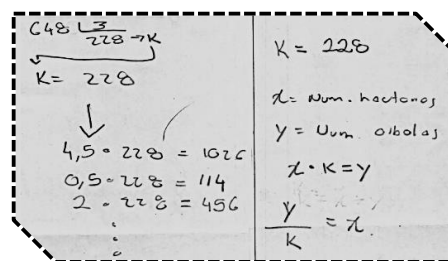 648 | 3
228 → K
K = 228
4,5 · 228 = 1026
0,5 · 228 = 114
2 · 228 = 456
K = 228
x = Num. hactanas
y = Num. oibolas
x · K = y
y / K = x